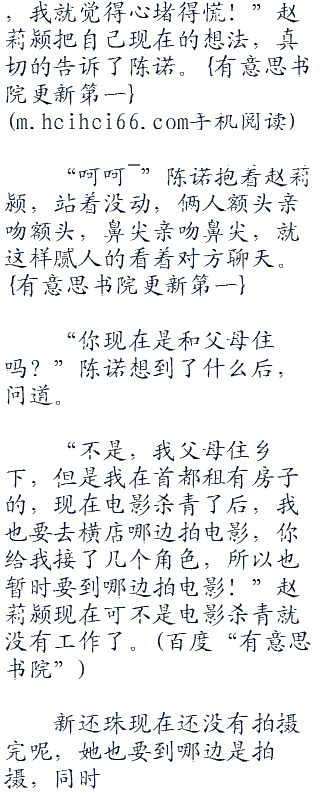 ，我就觉得心堵得慌！”赵
莉颖把自己现在的想法，真
切的告诉了陈诺。{有意思书
院更新第一}
(m.hcihci66.com手机阅读)
“呵呵~”陈诺抱着赵莉
颖，站着没动，俩人额头亲
吻额头，鼻尖亲吻鼻尖，就
这样腻人的看着对方聊天。
{有意思书院更新第一}
“你现在是和父母住
吗？”陈诺想到了什么后，
问道。
“不是，我父母住乡
下，但是我在首都租有房子
的，现在电影杀青了后，我
也要去横店哪边拍电影，你
给我接了几个角色，所以也
暂时要到哪边拍电影！”赵
莉颖现在可不是电影杀青就
没有工作了。(百度“有意思
书院”)
新还珠现在还没有拍摄
完呢，她也要到哪边是拍
摄，同时